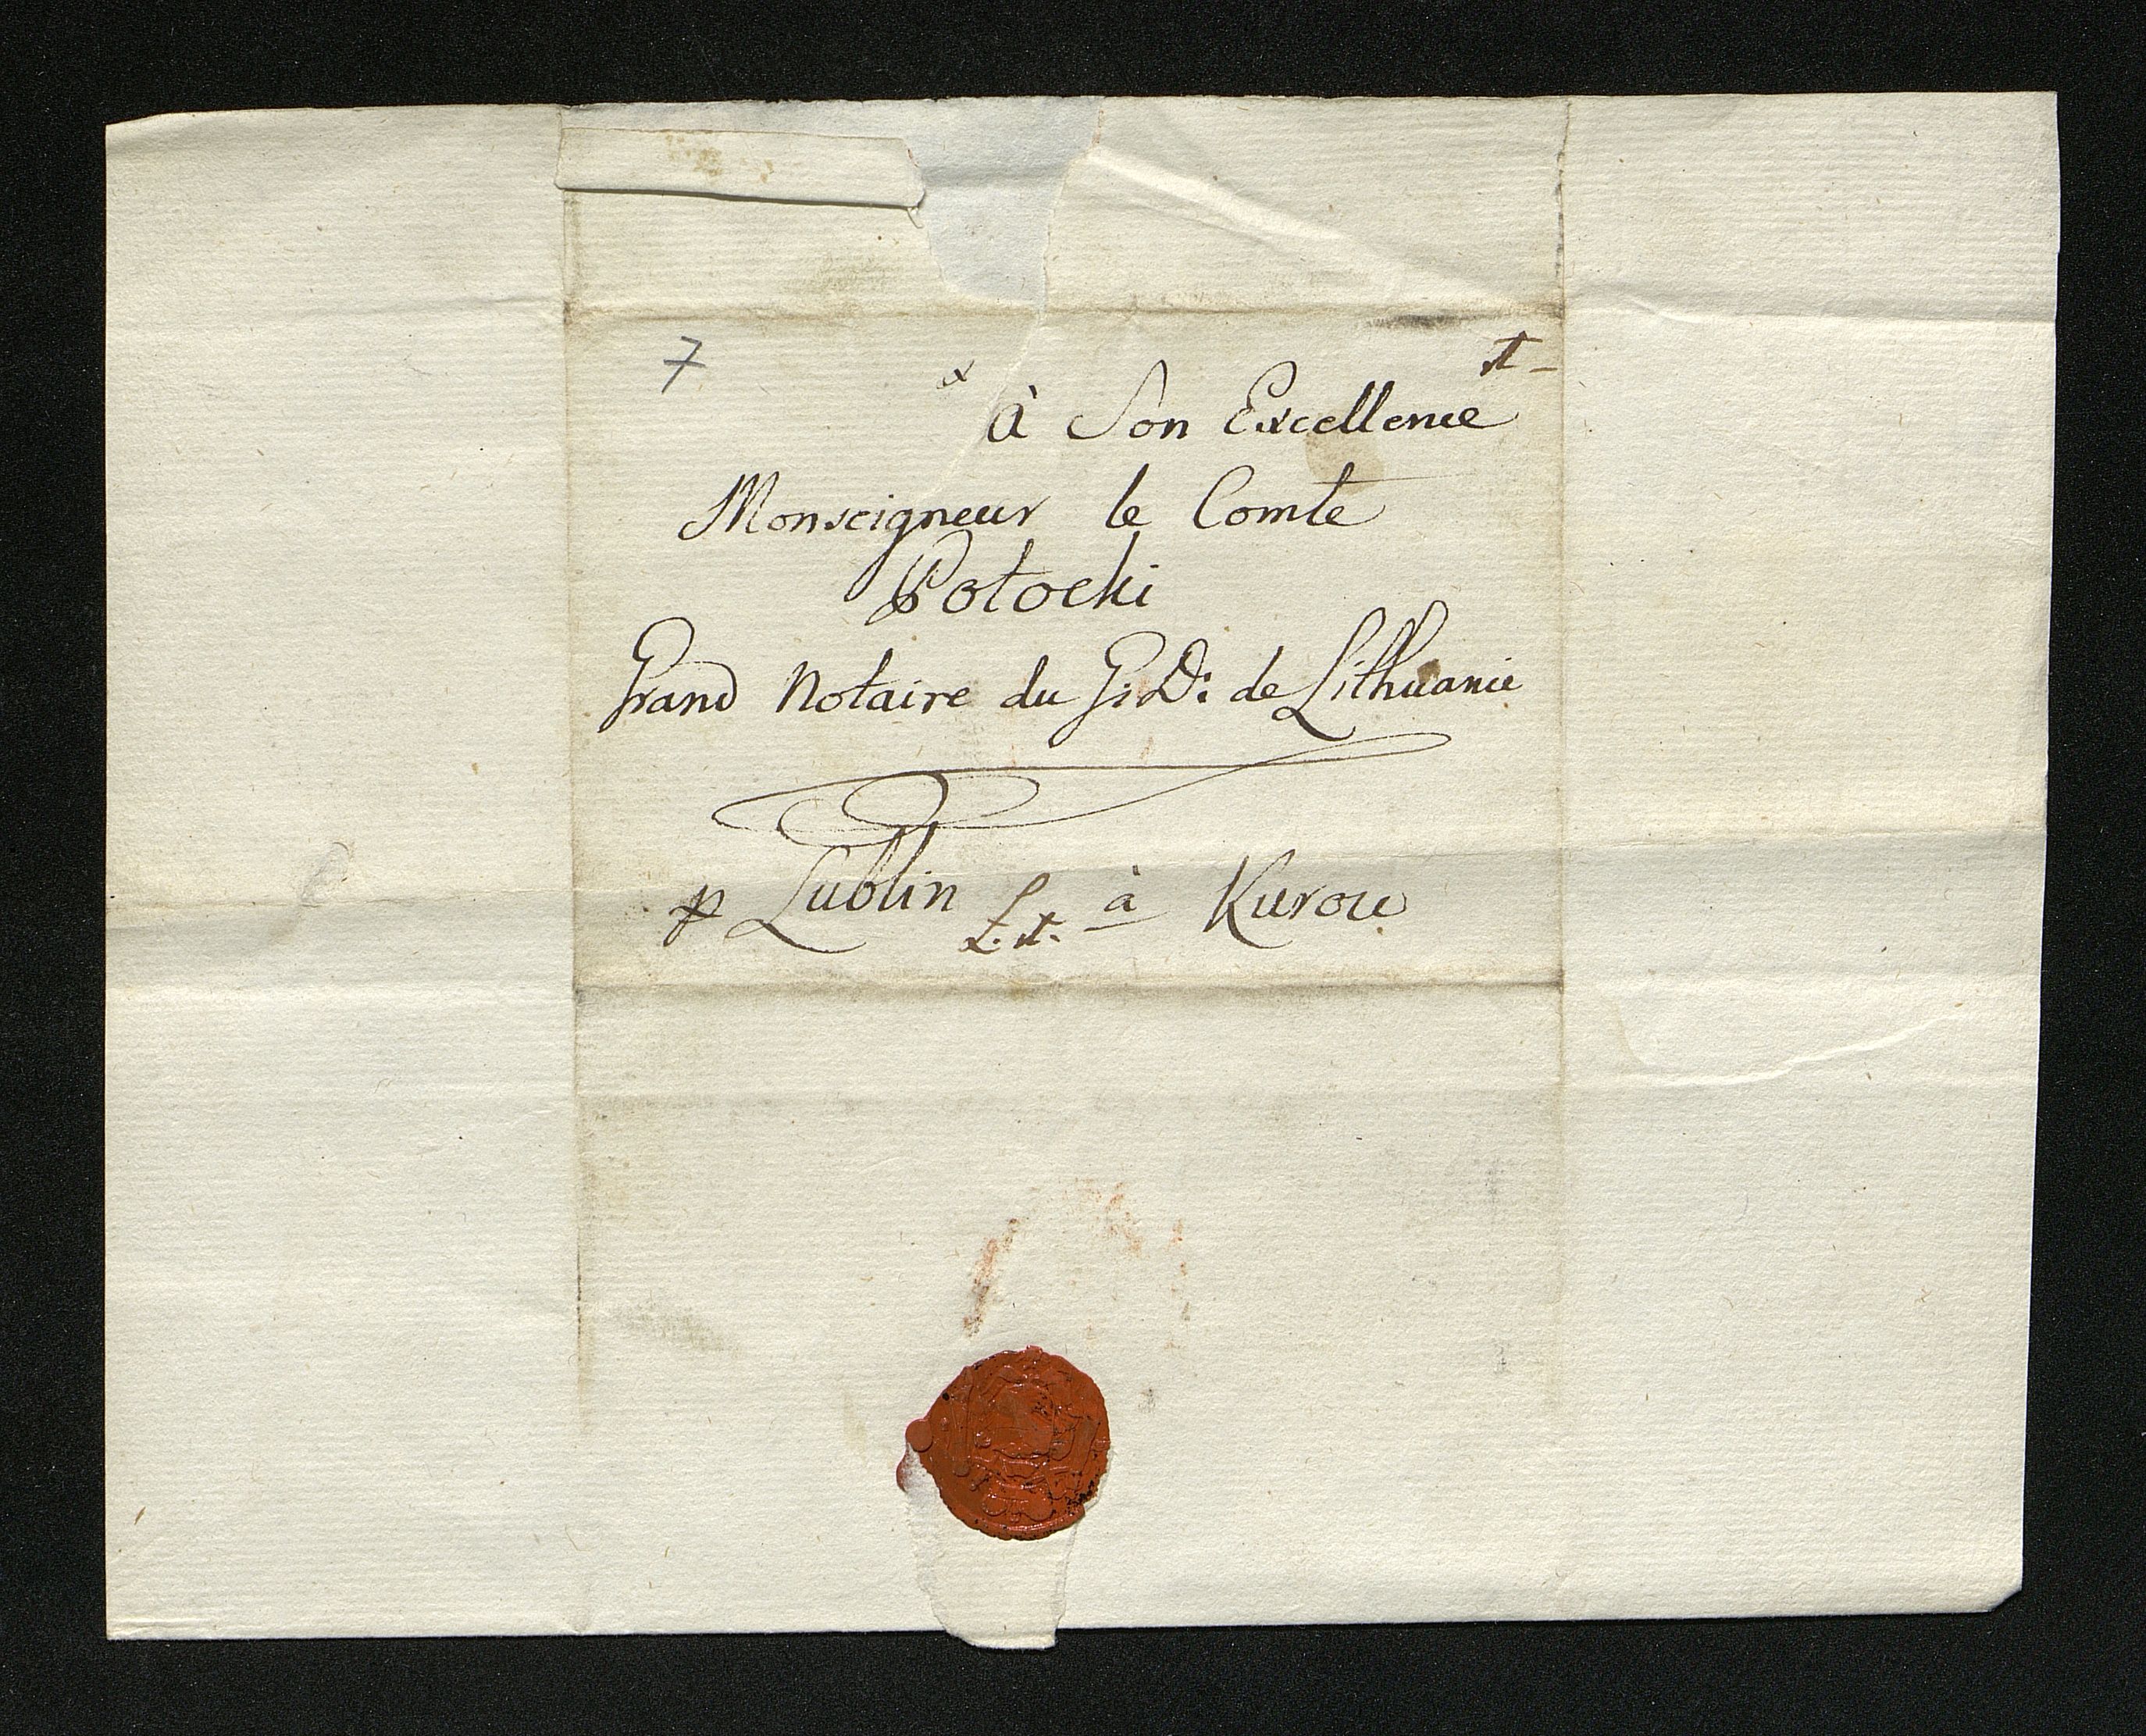 7
à Son Excellence
Monseigneur le Comte
Potocki
Grand Notaire du G: D: de Lithuanie
p Lublin à Kurow